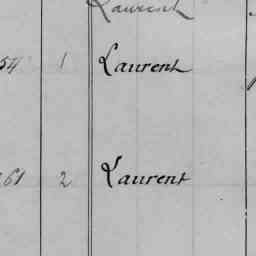 Laurent
54 1 Laurent
61 2 Laurent